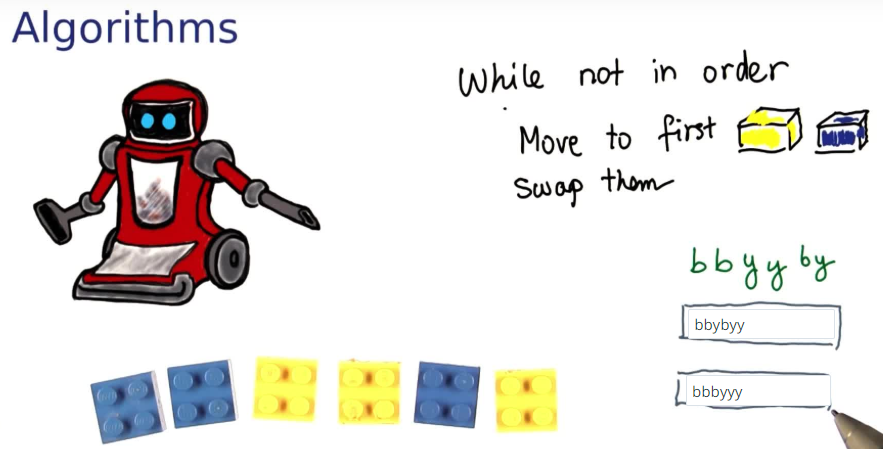 Algorithms
While not in order
Move to first
swap them
bbyyby
bbybyy
bbbyyy